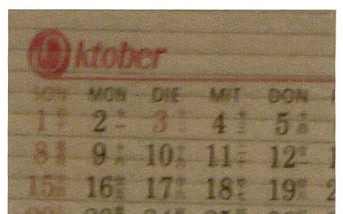 Oktober
SON MON DIE MIT DON
1 2 3 4 5
8 9 10 11 12 1
15 16 17 18 19 2